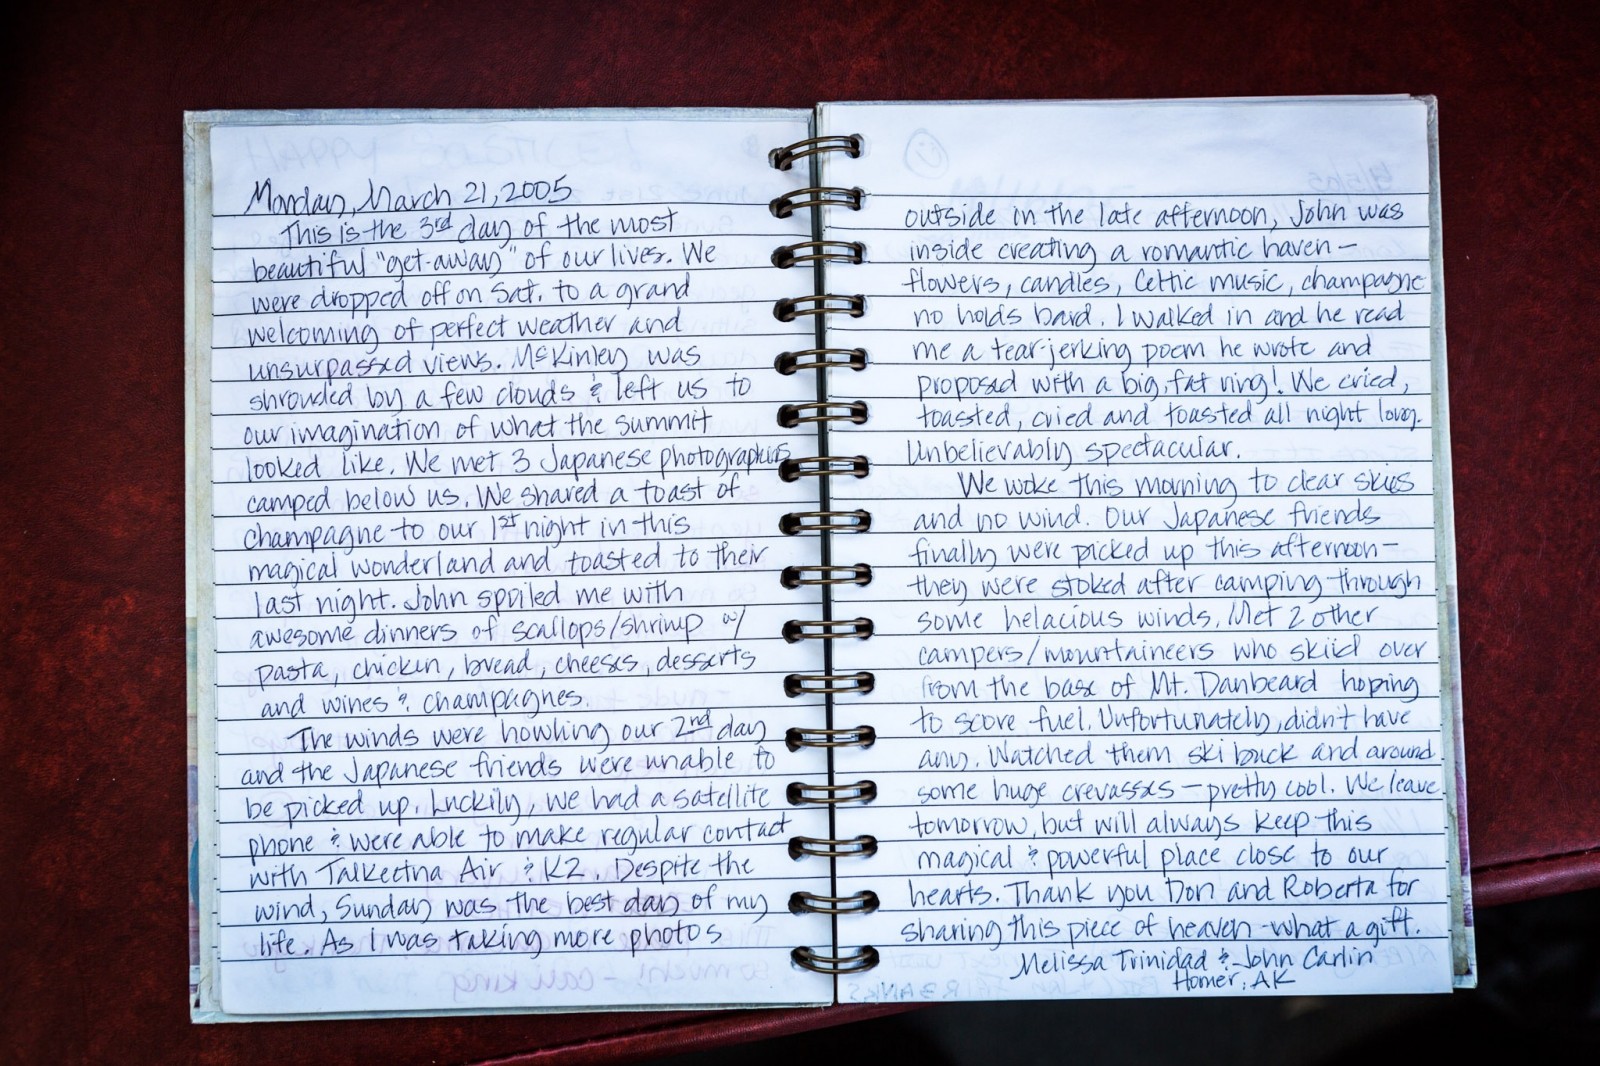 Monday, March 21, 2005
This is the 3rd day of the most
beautiful "get-away" of our lives. We
were dropped off on Sat. to a grand
welcoming of perfect weather and
unsurpassed views. McKinley was
shrouded by a few clouds & left us to
our imagination of what the summit
looked like. We met 3 Japanese photographers
camped below us. We shared a toast of
champagne to our 1st night in this
magical wonderland and toasted to their
last night. John spoiled me with
awesome dinners of scallops/shrimp w/
pasta, chicken, bread, cheeses, desserts
and wines & champagnes.
The winds were howling our 2nd day
and the Japanese friends were unable to
be picked up. Luckily, we had a satellite
phone & were able to make regular contact
with Talkeetna Air & K2. Despite the
wind, Sunday was the best day of my
life. As I was taking more photos
outside in the late afternoon, John was
inside creating a romantic haven—
flowers, candles, Celtic music, champagne
no holds bard. I walked in and he read
me a tear-jerking poem he wrote and
proposed with a big, fat ring! We cried,
toasted, cried and toasted all night long.
Unbelievably spectacular.
We woke this morning to clear skies
and no wind. Our Japanese friends
finally were picked up this afternoon—
they were stoked after camping through
some helacious winds. Met 2 other
campers/mountaineers who skiied over
from the base of Mt. Danbeard hoping
to score fuel. Unfortunately, didn't have
any. Watched them ski back and around
some huge crevasses — pretty cool. We leave
tomorrow, but will always keep this
magical & powerful place close to our
hearts. Thank you Don and Roberta for
sharing this piece of heaven - what a gift.
Melissa Trinidad & John Carlin
Homer, AK